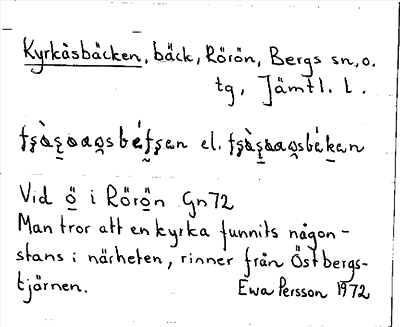 Kyrkåsbäcken, bäck, Rörön, Bergs sn, o.
tg, Jämtl. l.
el.
Vid ö i Rörön Gn72
Man tror att en kyrka funnits någon-
stans i närheten, rinner från Östbergs-
tjärnen. Ewa Persson 1972